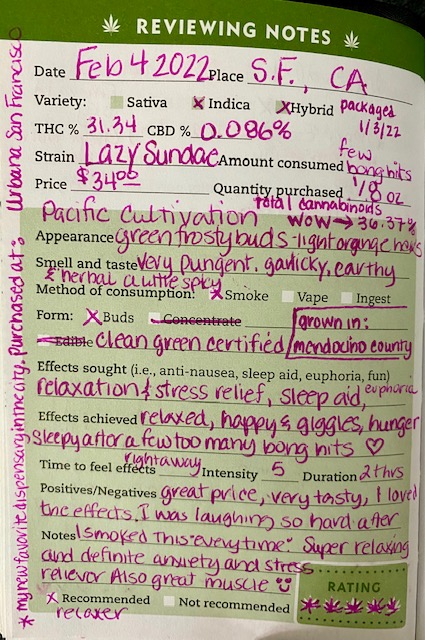 REVIEWING NOTES
Date Feb 4 2022 Place S.F., CA
Variety: Sativa X Indica X Hybrid packaged
THC % 31.34 CBD % 0.086% 1/3/22
Strain Lazy Sundae Amount consumed few bong hits
Price $34.00 Quantity purchased 1/8 oz
Pacific Cultivation total cannabinoids
WOW → 36.37%
Appearance green frosty buds - light orange hairs
Smell and taste very pungent, garlicky, earthy
& herbal a little spicy
Method of consumption: X Smoke Vape Ingest
Form: X Buds Concentrate grown in:
Edible clean green certified mendocino county
Effects sought (i.e., anti-nausea, sleep aid, euphoria, fun)
relaxation & stress relief, sleep aid, euphoria
Effects achieved relaxed, happy & giggles, hunger
sleepy after a few too many bong hits ♡
Time to feel effects right away Intensity 5 Duration 2+hrs
Positives/Negatives great price, very tasty, I loved
the effects. I was laughing so hard after
Notes I smoked this everytime. Super relaxing
and definite anxiety and stress
reliever Also great muscle
X Recommended Not recommended
relaxer
RATING
* my new favorite dispensary in the city. purchased at: Urbana San Francisco